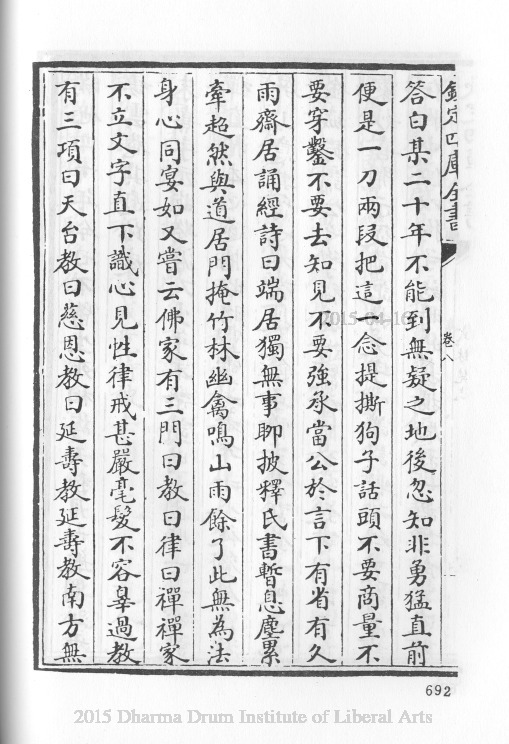 欽定四庫全書
卷八
答白某二十年不能到無疑之地後忽知非勇猛直前
便是一刀兩段把這一念提撕狗子話頭不要商量不
要穿鑿不要去知見不要強承當公於言下有省有久
雨齋居誦經詩曰端居獨無事聊披釋氏書暫息塵累
牽超然與道居門掩竹林幽禽鳴山雨餘了此無為法
身心同宴如又嘗云佛家有三門曰教曰律曰禪禪家
不立文字直下識心見性律戒甚嚴毫髮不容辠過教
有三項曰天台教曰慈恩教曰延壽教延壽教南方無
2015-04-16
692
2015 Dharma Drum Institute of Liberal Arts